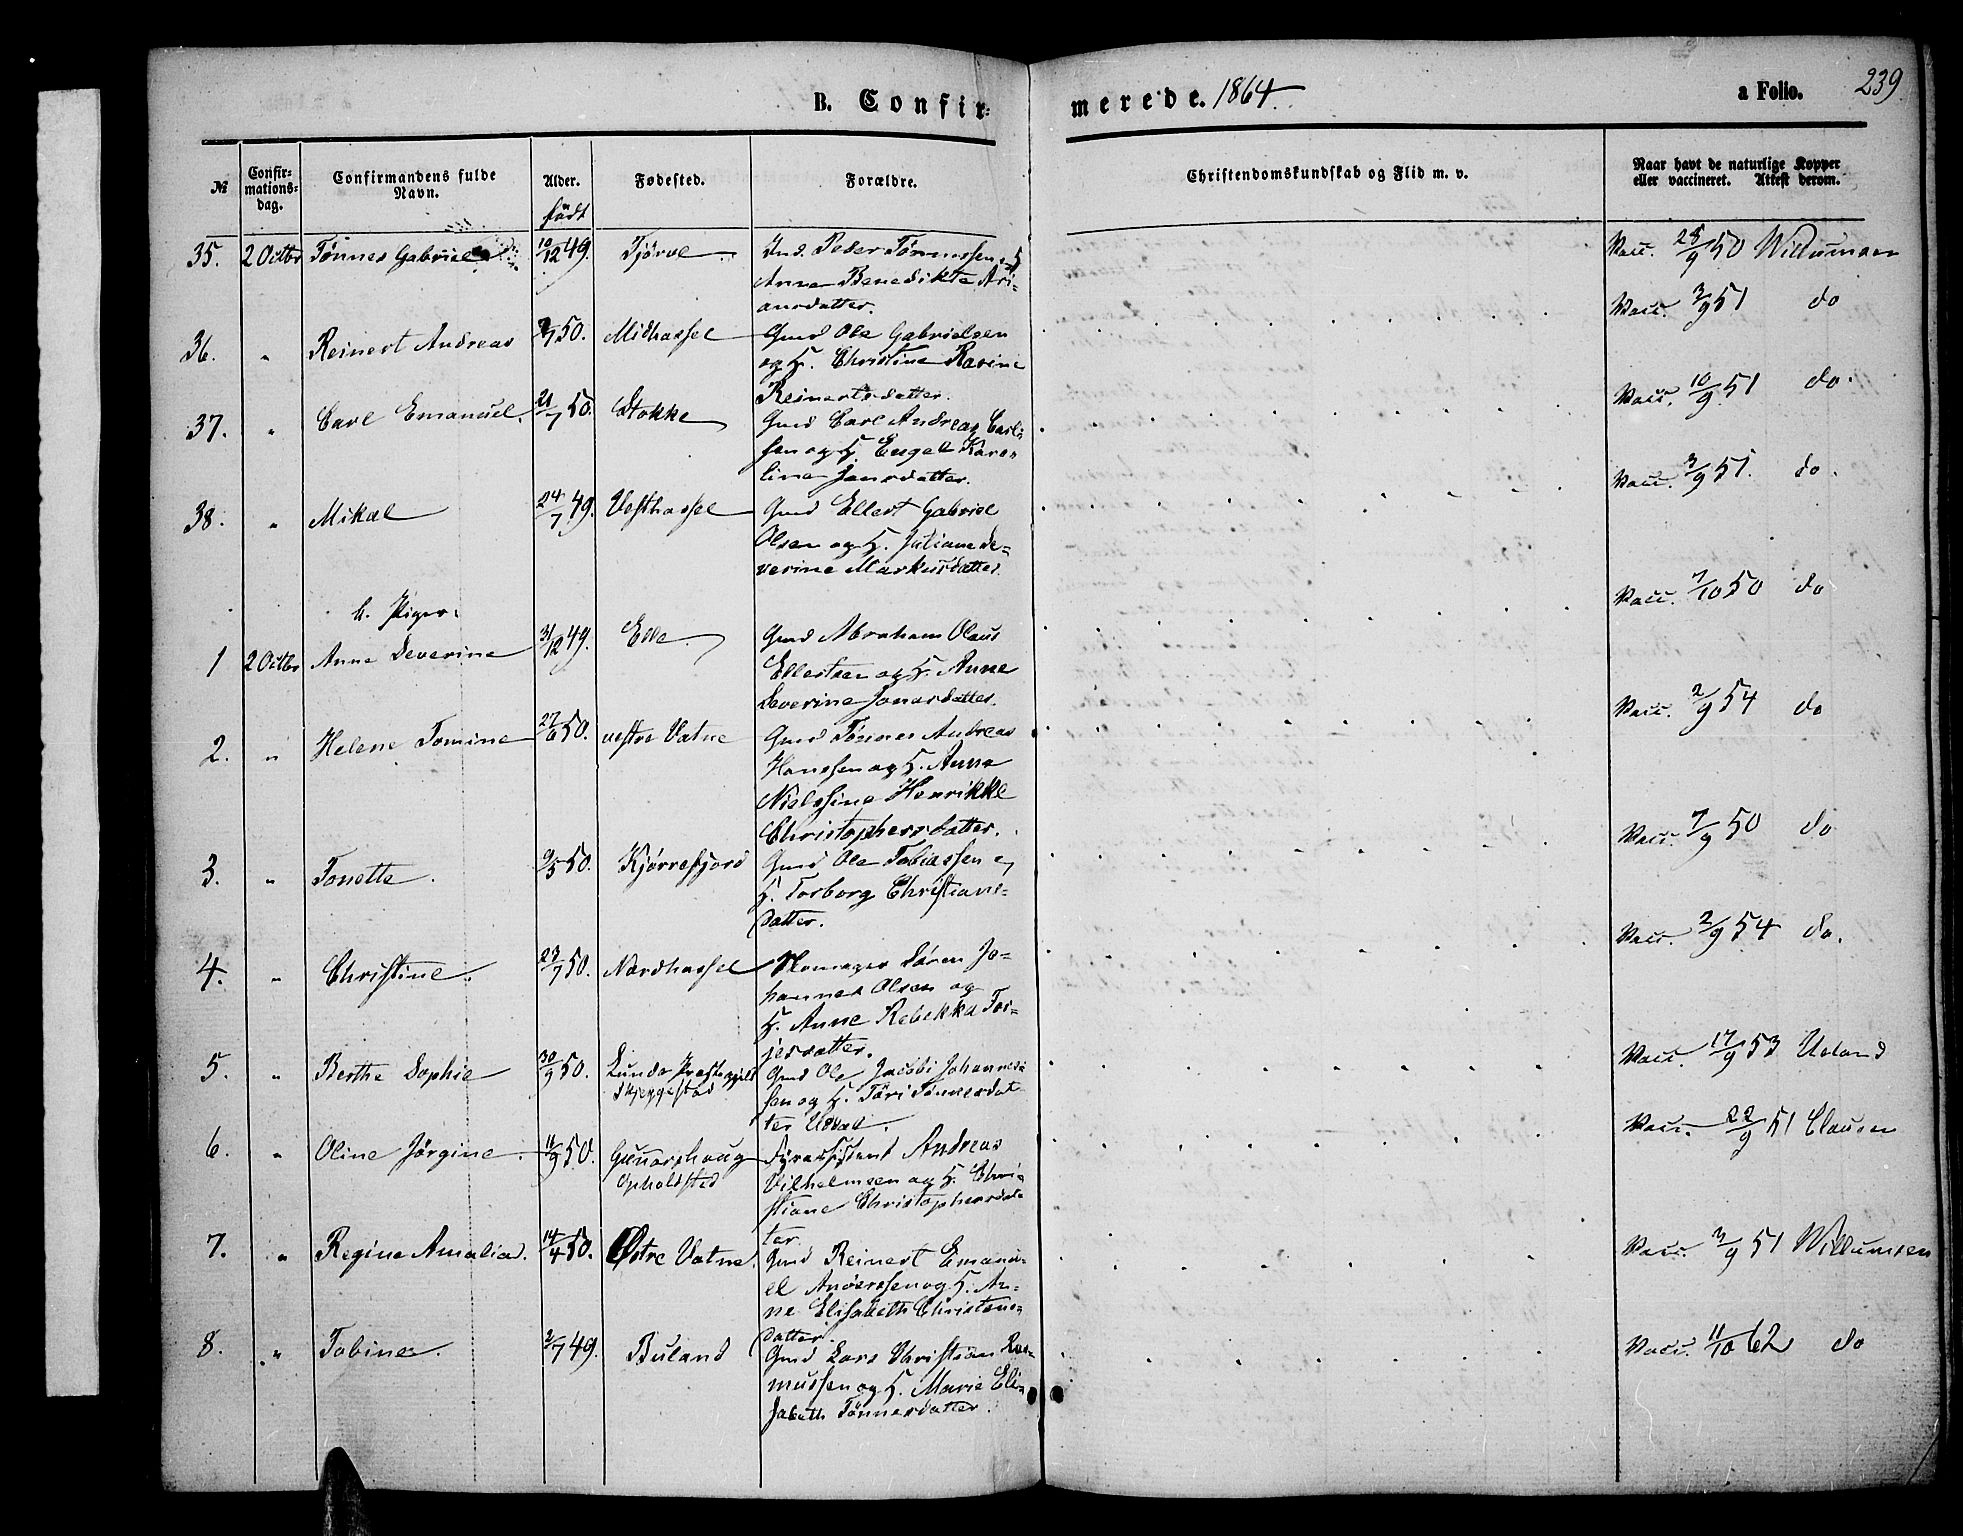 B. Confir-
merede. 1864.
a Folio. 239
№
Confir-
mations-
dag.
Confirmandens fulde
Navn.
Alder.
født
Fødested.
Forældre.
Christendomskundskab og Flid m. v.
Naar havt de naturlige Kopper
eller vaccineret. Attest derom.
35. 2 Octbr Tønnes Gabriel 10/12 49. Tjørve Ind. Peder Tønnessen og
Anne Benedikte Ari-
ansdatter.
Vacc. 25/9 50 Willumsen
36. " Reinert Andreas /7 50. Midhassel Gmd Ole Gabrielsen
og H. Christine Karine
Reinertsdatter.
Vacc. 3/9 51 do
37. " Carl Emanuel. 21/7 50. Stokke Gmd Carl Andreas Carl-
sen og H. Engel Karo-
line Jansdatter.
Vacc. 10/9 51 do.
38. " Mikal 24/7 49. Vesthassel Gmd Ellert Gabriel
Olsen og H. Juliane Se-
verine Markusdatter.
Vacc. 3/9 51. do.
b. Piger.
1 2 Octbr Anne Severine 31/12 49. Elle Gmd Abraham Olaus
Ellertsen og H. Anne
Severine Jonasdatter.
Vacc. 7/10 50 do
2. " Helene Tomine 27/6 50. vestre Vatne Gmd Tønnes Andreas
Hansen og H. Anne
Nielsine Henrikke
Christophersdatter.
Vacc. 2/9 54 do
3. " Tonette. 9/5 50. Kjørrefjord Gmd Ole Tobiassen og
H. Torborg Christians-
datter.
Vacc. 7/9 50 do
4. " Christine. 23/7 50. Nordhassel Skomager Søren Jo-
hannes Olsen og
H. Anne Rebekka Tor-
jersdatter.
Vacc. 2/9 54 do.
5. " Berthe Sophie 30/9 50. Lunde Præstegjeld
Skjeggestad
Gmd Ole Jacobi Johannes-
sen og H. Tori Tønnesdat-
ter
Vacc. 17/9 53 Ueland
6. " Oline Jørgine. 11/9 50. Gunarshaug
Opholdsted
Fyrassistent Andreas
Vilhelmsen og H. Chri-
stiane Christophersdat-
ter.
Vacc. 22/9 51 Clausen
7. " Regine Amalia. 14/4 50. Østre Vatne. Gmd Reinert Emanu-
el Anderssen og H. An-
ne Elisabeth Christens-
datter.
Vacc. 3/9 51 Willumsen
8. " Tobine. 2/7 49. Buland Gmd Lars Christian Ras-
mussen og H. Marie Eli-
sabeth Tønnesdatter.
Vacc. 11/10 62 do